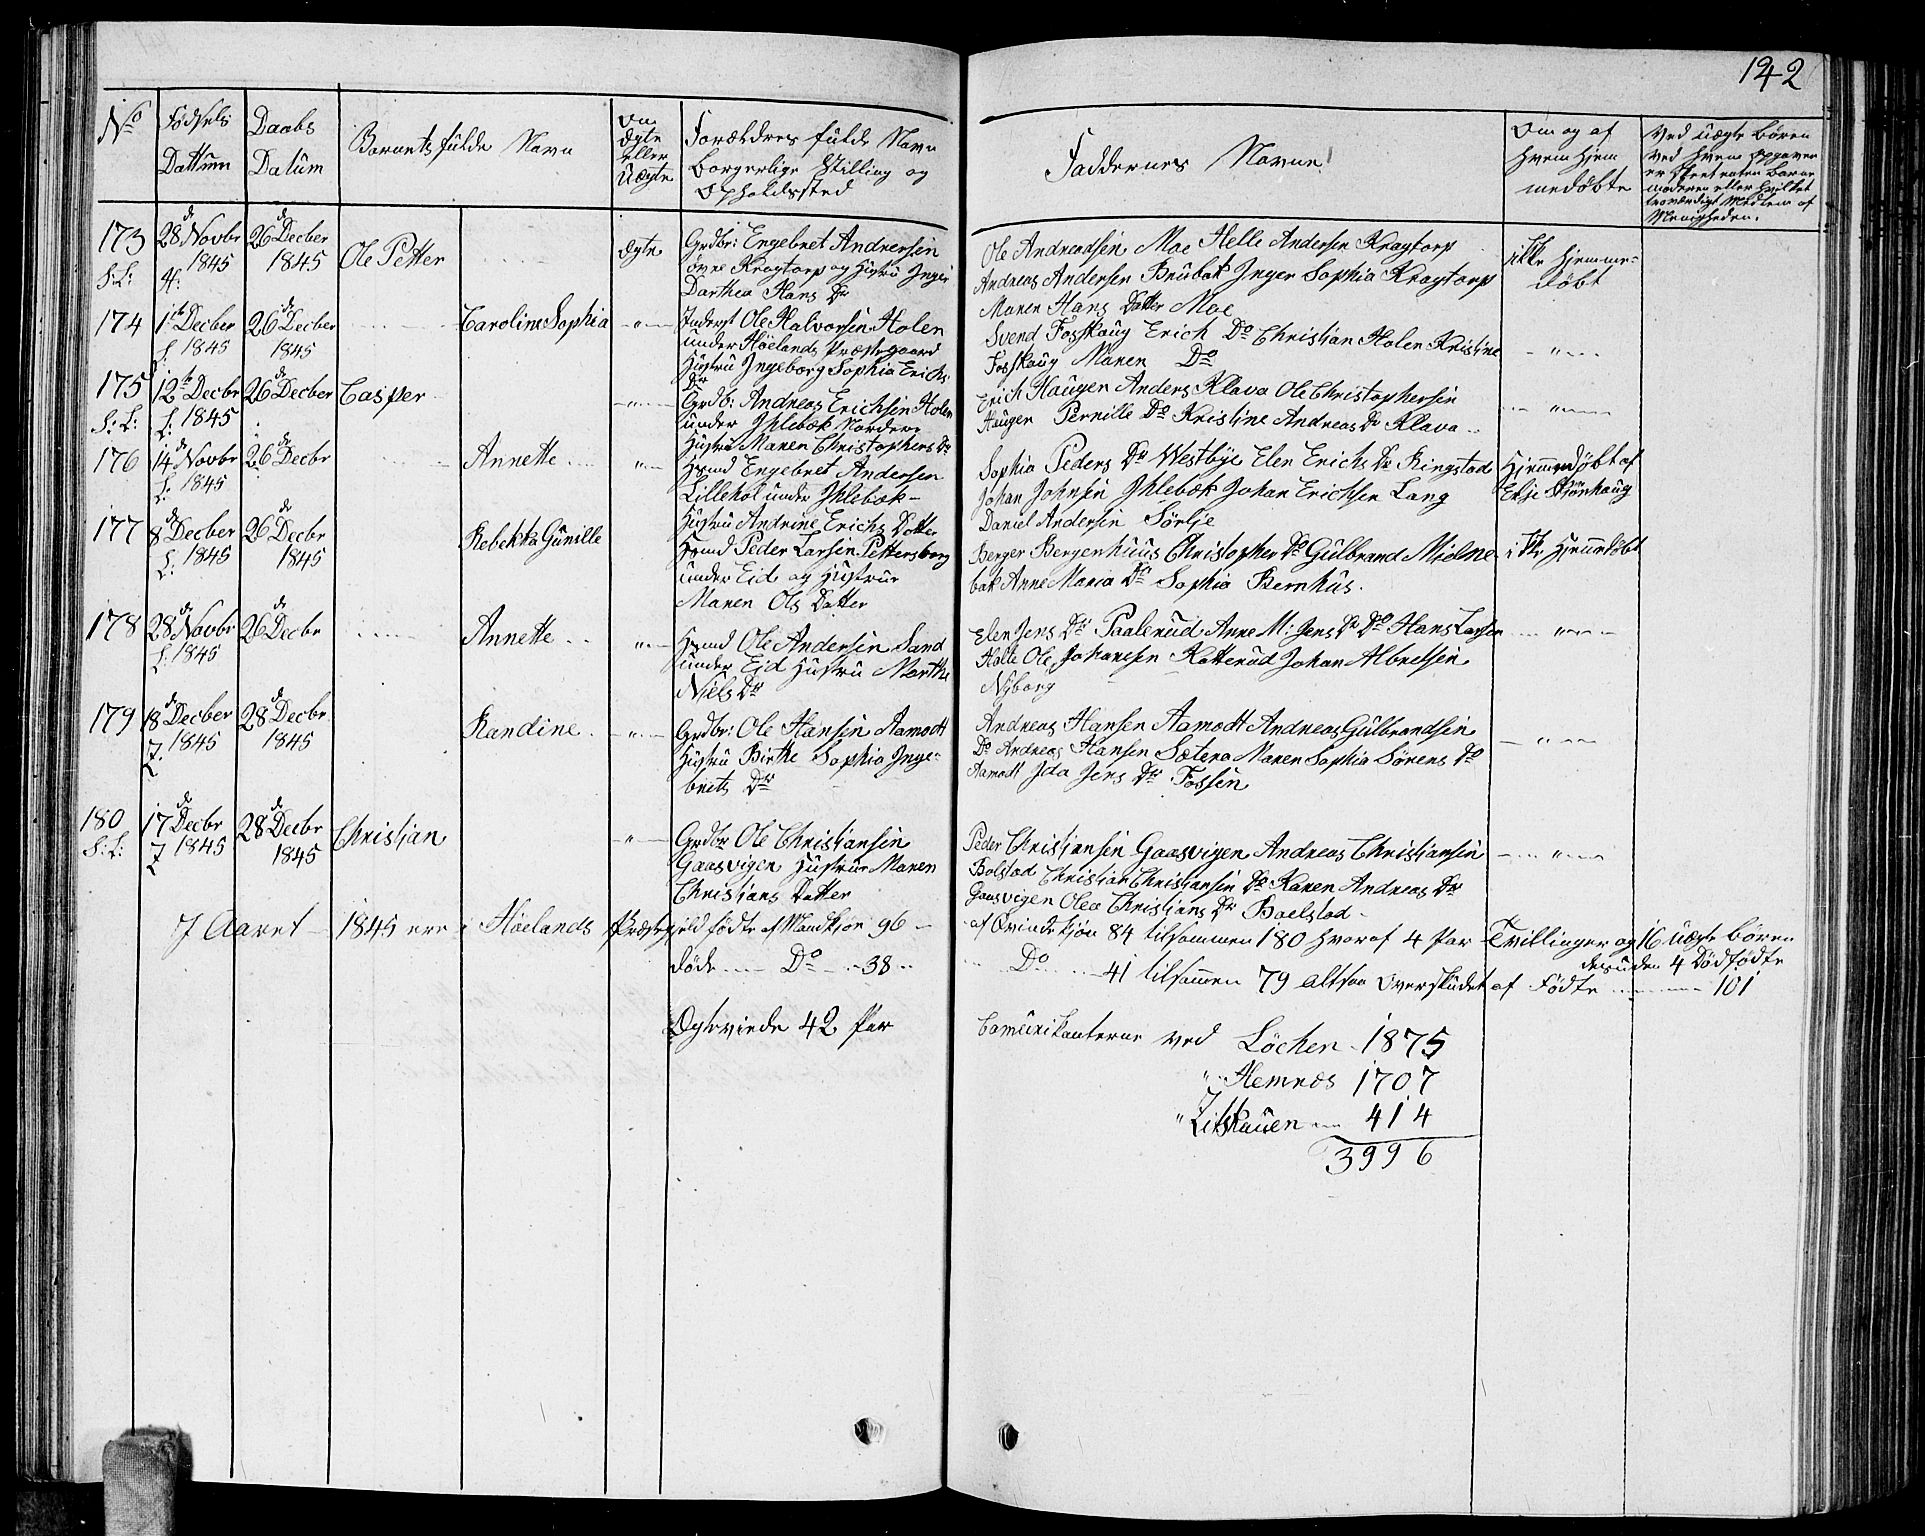 142
No Fødsels Dattum Daabs Datum Barnets fulde Navn Om Ægte eller Uægte Forældres fulde Navn Borgerlige Stilling og Opholdssted Faddernes Navne Om og af hvem hjem medøbte Ved uægte Børen ved hvem Opgaven er skeet enten Barne moderen eller hvilket troværdigt Medlem af Menigheden.
173 28de Novbr 26de Decber
1845 1845 Ole Petter Ægte
Grdbr: Engebret Andersen
øvre Kragtorp og Hustru Inger
Dorthea Hans Dr
Ole Andreasen Moe Helle Andersen Kragtorp
Andreas Andersen Brubæk Inger Sophia Kragtorp
Maren Hans Datter Moe
ikke Hjemme-
døbt
174 1ste Decber 26de Decber
1845 1845 Caroline Sophia
Inderst Ole Halvorsen Holen
under Høelands Præstegaard
Hustru Ingeborg Sophia Erichs
Dr
Svend Fosskaug Erich Do Christian Holen Kristine
Fosskaug Maren Do
175 12te Decbr 26de Decber Casper
1845
Grdb: Andreas Erichsen Holen
under Ihlebæk Nordere
Hustru Maren Christophers Dr
Erich Haugen Anders Klava Ole Christophersen
Haugen Pernille Do Kristine Andreas Dr Klava
176 14de Novbr 26de Decbr Annette
1845
Hmd Engebret Andersen
Lillehol under Ihlebæk
Hustru Andrine Erichs Datter
Sophia Peders Dr Westbye Elen Erichs Dr Ringstad
Johan Johnsen Ihlebæk Johan Erichsen Lang
Daniel Andersen Sörlje
Hjemmedøbt af
177 8de Decber 26de Decbr Rebekka Gunille
1845 1845
Hmd Peder Larsen Pettersborg
under Eid og Hustrue
Maren Ols Datter
Berger Bergenhuus Christopher Do Gulbrand Mielne
bæk Anne Maria Do Sophia Bernhus.
ikke Hjemmdøbt
178 28de Novbr 26de Decbr Annette
1845
Hmd Ole Andersen Sand
under Eid Hustru Marthe
Niels Dr
Elen Jens Dr Paalerud Anne M: Jens Dr Do Hans Larsen
Holte Ole Johansen Kotterud Johan Albretsen
Nyborg
179 18de Decber 28de Decbr Randine
1845 1845
Grdbr: Ole Hansen Aamodt
Hustru Birthe Sophia Inge-
brets Dr
Andreas Hansen Aamodt Andreas Gulbrandsen
Do Andreas Hansen Sætera Maren Sophia Sörens Dr
Aamodt Ida Jens Dr Fossen
180 17de Decbr 28de Decbr Christian
1845 1845
Grdbr Ole Christiansen
Gaasvigen Hustrue Maren
Christians Datter
Peder Christiansen Gaasvigen Andreas Christiansen
Bolstad Christian Christiansen Do Karen Andreas Dr
Gaasvigen Olea Christians Dr Baelstad
I Aaret 1845 ere i Høelands Præstegield fødte af Mandkjøn 96 af Qvindekjøn 84 tilsammen 180 hvoraf 4 Par Tvillinger og 16 uægte Børen
desuden 4 Dödfödte
døde Do 38 Do 41 tilsammen 79 altsaa Overskudet af Fødte 101
Ægteviede 42 Par
Comunikanterne ved Löchen 1875
" Hemnæs 1707
" 414
3996